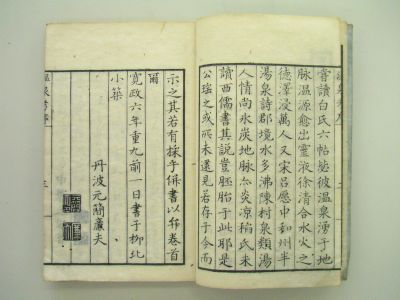 嘗讀白氏六帖藍彼温泉湧于地
脉温源愈出靈液徐清合水火之
德澤浸萬人又宋呂愿中和州半
湯泉詩郡境水多沸陳村泉類湯
人情尚水炭地脉亦炎涼稱氏未
讀西儒書其説豈胚胎于此耶是
公瑤之或所未還見若存于今而
示之其若有採乎併書以弁卷首
爾
寛政六年重九前一日書于柳北
小築
丹波元簡廉夫
温泉考序
三